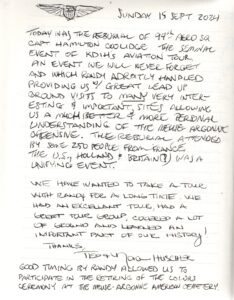 SUNDAY 15 SEPT. 2024
TODAY WAS THE REBURIAL OF 94TH AERO SQ.
CAPT HAMILTON COOLIDGE THE SEMINAL
EVENT OF KDIH'S AVIATION TOUR
AN EVENT WE WILL NEVER FORGET
AND WHICH RANDY ADROITLY HANDLED
PROVIDING US W/ GREAT LEAD UP
GROUND VISITS TO MANY VERY INTER-
ESTING & IMPORTANT SITES ALLOWING
US A MUCH BETTER & MORE PERSONAL
UNDERSTANDING OF THE MEUSE-ARGONNE
OFFENSIVE. THE REBURIAL ATTENDED
BY SOME 250 PEOPLE FROM FRANCE,
THE U.S., HOLLAND & BRITAIN WAS A
UNIFYING EVENT.
WE HAVE WANTED TO TAKE A TOUR
WITH RANDY FOR A LONG TIME! WE
HAD AN EXCELLANT TOUR, HAD A
GREAT TOUR GROUP, COVERED A LOT
OF GROUND AND LEARNED AN
IMPORTANT PART OF OUR HISTORY!
THANKS,
TERRY HUSCHER
GOOD TIMING BY RANDY ALLOWED US TO
PARTICIPATE IN THE RETIRING OF THE COLORS
CEREMONY AT THE MEUSE-ARGONNE AMERICAN CEMETERY.